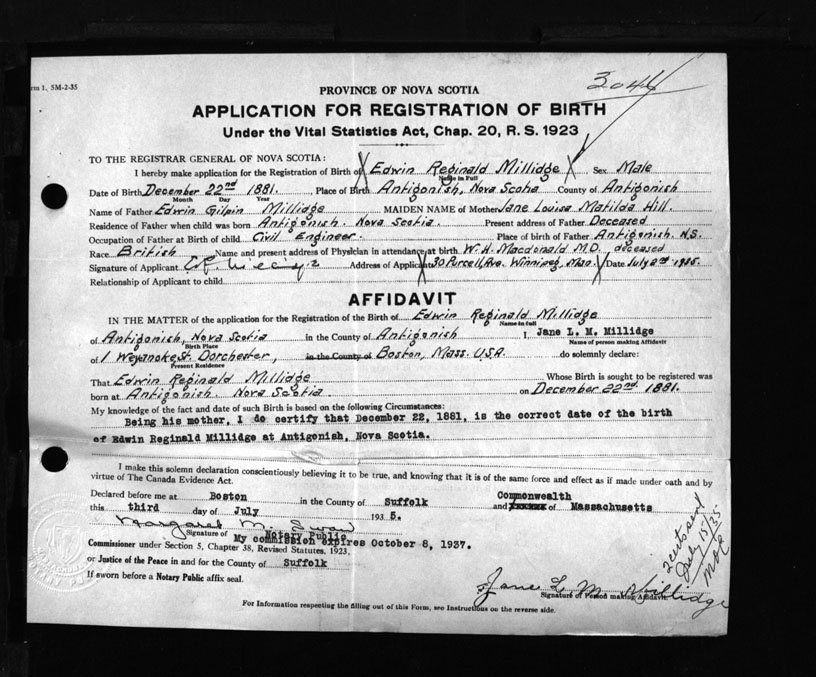 rm 1, 5M-2-35
3044
PROVINCE OF NOVA SCOTIA
APPLICATION FOR REGISTRATION OF BIRTH
Under the Vital Statistics Act, Chap. 20, R. S. 1923
TO THE REGISTRAR GENERAL OF NOVA SCOTIA:
I hereby make application for the Registration of Birth of Edwin Reginald Millidge Sex Male
Name in Full
Date of Birth December 22nd 1881. Place of Birth Antigonish, Nova Scotia County of Antigonish
Month Day Year
Name of Father Edwin Gilpin Millidge MAIDEN NAME of Mother Jane Louisa Matilda Hill.
Residence of Father when child was born Antigonish. Nova Scotia. Present address of Father Deceased
Occupation of Father at Birth of child Civil Engineer. Place of birth of Father Antigonish. N.S.
Race British Name and present address of Physician in attendance at birth W. H. Macdonald M.D. deceased
Signature of Applicant Address of Applicant 30 Purcell, Ave. Winnipeg, Man. Date July 2nd 1935.
Relationship of Applicant to child
AFFIDAVIT
IN THE MATTER of the application for the Registration of the Birth of Edwin Reginald Millidge
Name in full
of Antigonish, Nova Scotia in the County of Antigonish I, Jane L. M. Millidge
Birth Place Name of person making Affidavit
of 1 Weyanoke St. Dorchester, in the County of Boston, Mass. U.S.A. do solemnly declare:
Present Residence
That Edwin Reginald Millidge Whose Birth is sought to be registered was
born at Antigonish. Nova Scotia. on December 22nd 1881.
My knowledge of the fact and date of such Birth is based on the following Circumstances:
Being his mother, I do certify that December 22, 1881, is the correct date of the birth
of Edwin Reginald Millidge at Antigonish, Nova Scotia.
I make this solemn declaration conscientiously believing it to be true, and knowing that it is of the same force and effect as if made under oath and by
virtue of The Canada Evidence Act.
Declared before me at Boston in the County of Suffolk Commonwealth
this third day of July 1935. and of Massachusetts
Margaret M. Swan
Signature of Notary Public
My commission expires October 8, 1937.
Commissioner under Section 5, Chapter 38, Revised Statutes, 1923,
or Justice of the Peace in and for the County of Suffolk
If sworn before a Notary Public affix seal.
Jane L. M. Millidge
Signature of Person making Affidavit
For Information respecting the filling out of this Form, see Instructions on the reverse side.
sent
July 15/35